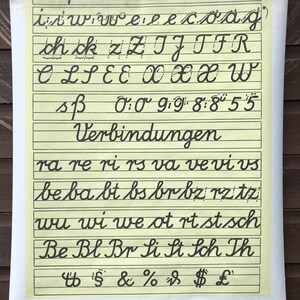 i :i w :w e .e e c o a g
ch ck z Z I J T F R
C L L E E X X X W
sß 0:0 9:9 8:8 5 5
Verbindungen
ra re ri rs va ve vi vs
be ba bt bs br bz rz tz
wu wi we ot rt st sch
Be Bl Br Si St Sch Th
§ & % $ £